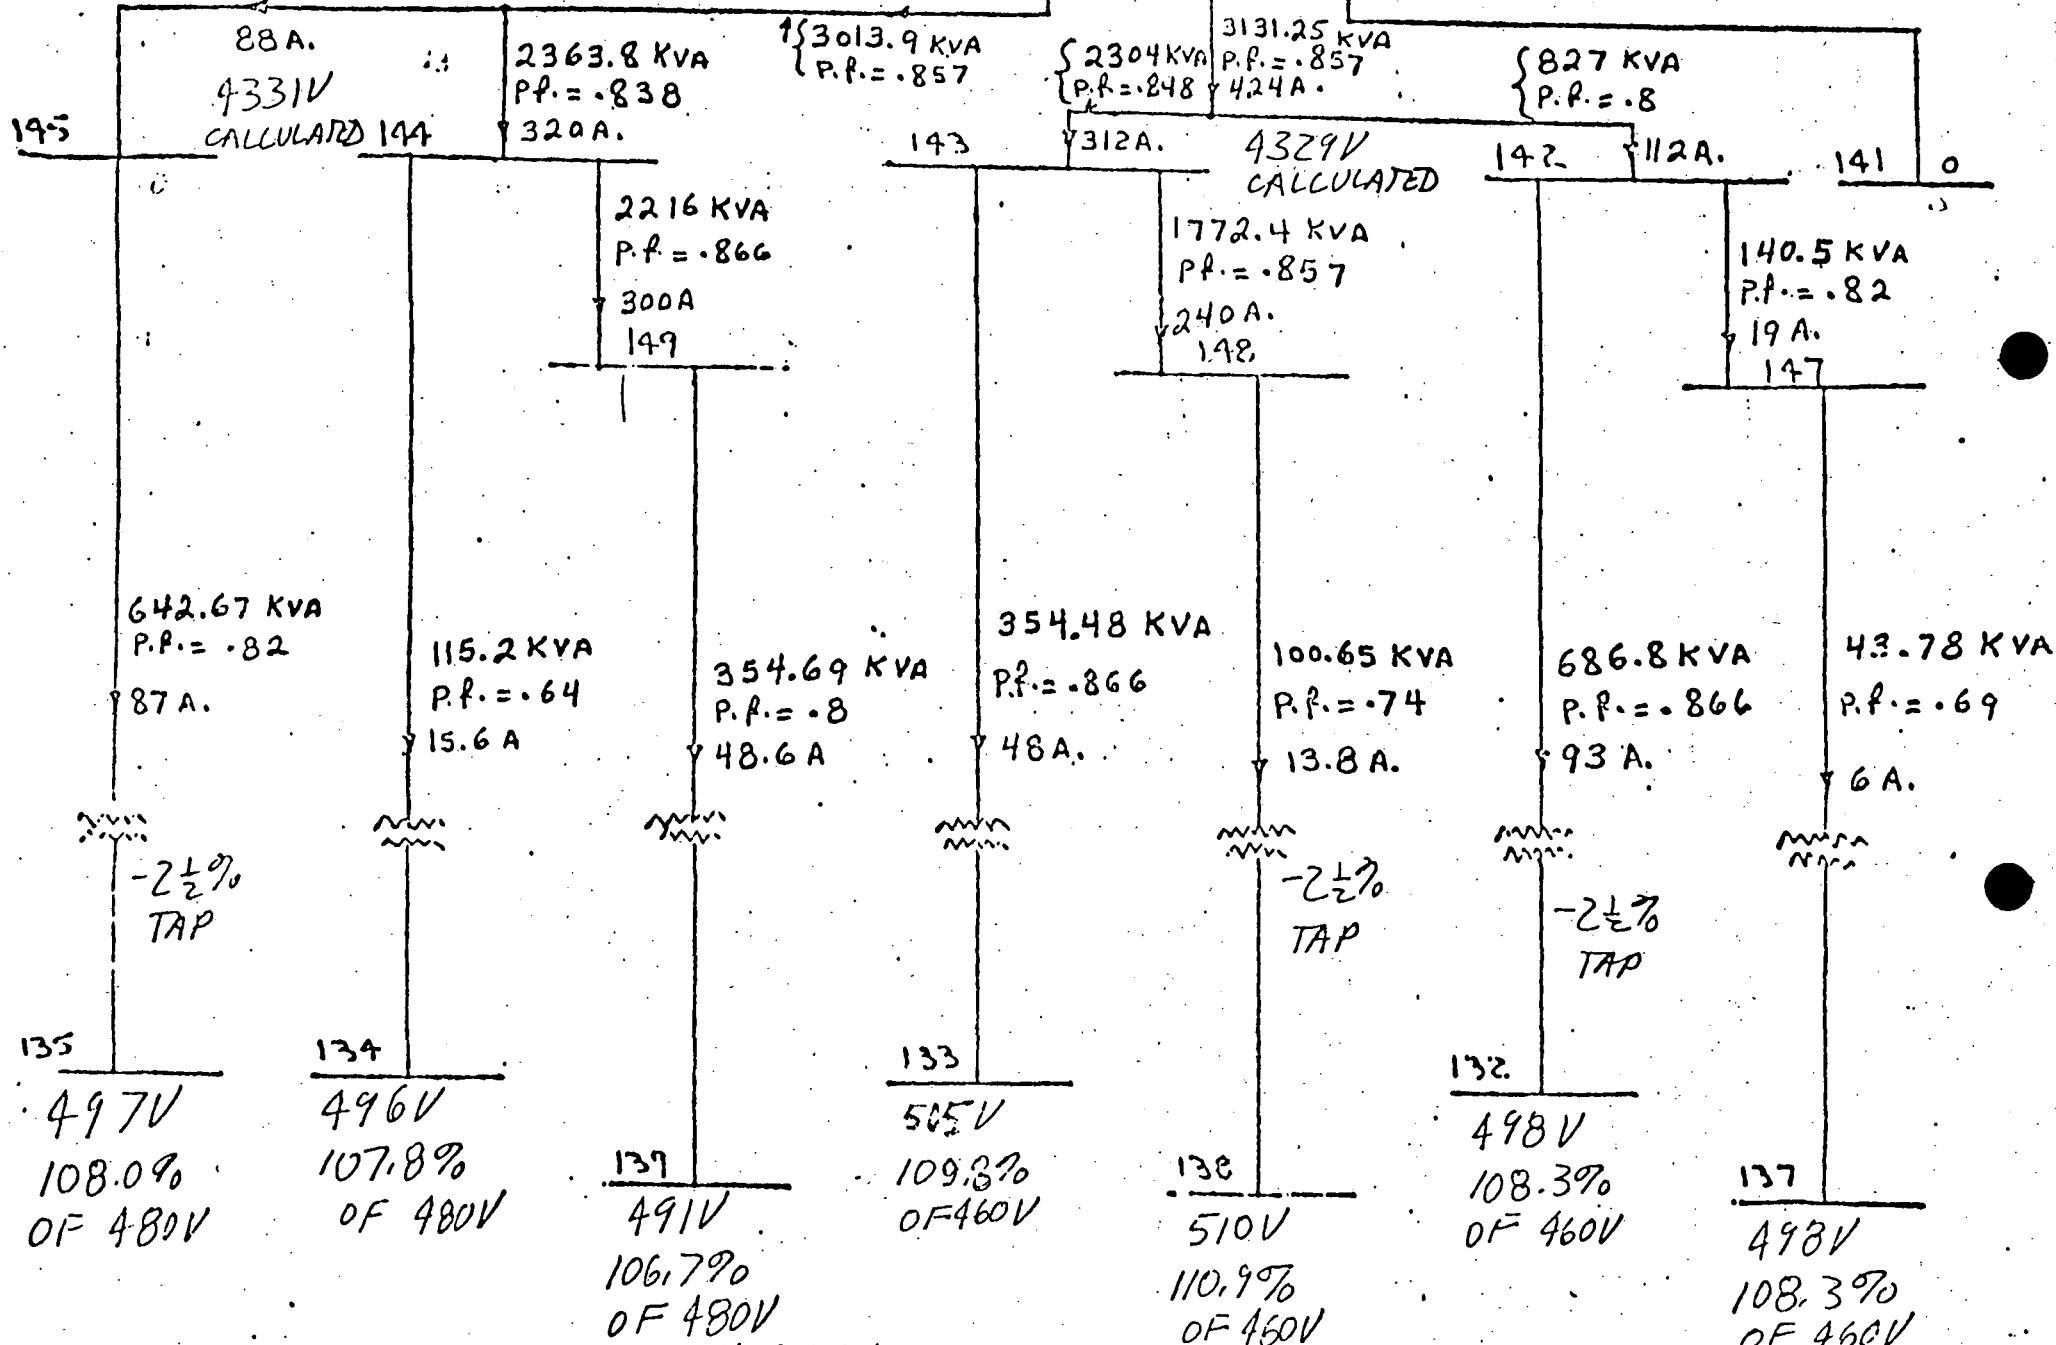 88 A.
4331V
CALCULATED
2363.8 KVA
Pf. = .838
320 A.
3013.9 KVA
P.f. = .857
2304 KVA
P.f. = .848
3131.25 KVA
P.f. = .857
424 A.
827 KVA
P.f. = .8
145
144
143
312 A.
4329V
CALCULATED
142
112 A.
141
0
2216 KVA
P.f. = .866
300 A
149
1772.4 KVA
Pf. = .857
240 A.
148
140.5 KVA
P.f. = .82
19 A.
147
642.67 KVA
P.f. = .82
87 A.
115.2 KVA
P.f. = .64
15.6 A
354.69 KVA
P.f. = .8
48.6 A
354.48 KVA
P.f. = .866
48 A.
100.65 KVA
P.f. = .74
13.8 A.
686.8 KVA
P.f. = .866
93 A.
43.78 KVA
P.f. = .69
6 A.
-2½%
TAP
-2½%
TAP
-2½%
TAP
135
497V
108.0%
OF 480V
134
496V
107.8%
OF 480V
139
491V
106.7%
OF 480V
133
505V
109.8%
OF 460V
138
510V
110.9%
OF 460V
132
498V
108.3%
OF 460V
137
498V
108.3%
OF 460V